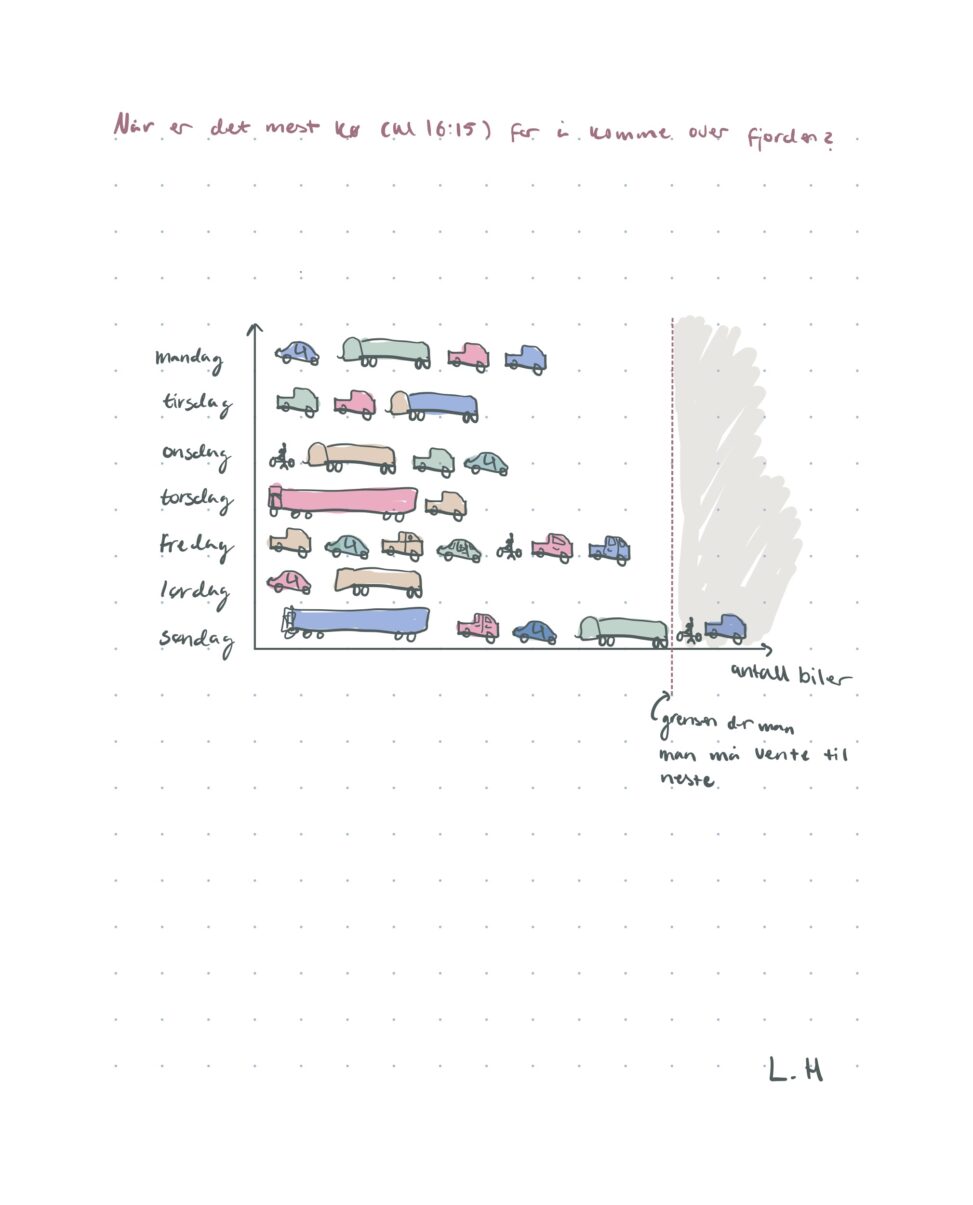 Når er det mest kø (kl 16:15) for å komme over fjorden?
mandag
tirsdag
onsdag
torsdag
fredag
lørdag
søndag
antall biler
grensen der man
man må vente til
neste
L.H